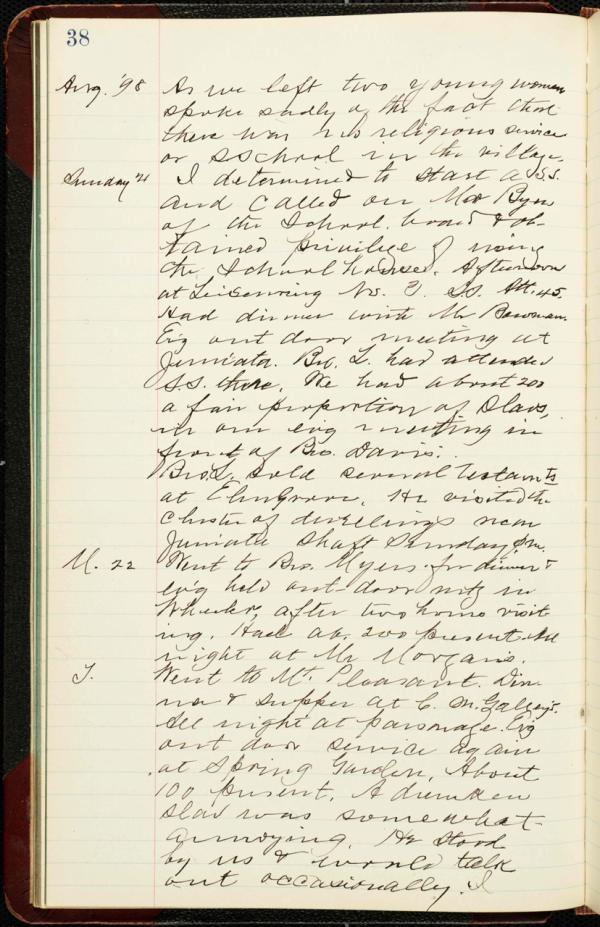 38
Aug. '98 As we left two young women
spoke sadly of the fact that
there was no religious service
or SSchool in the village.
Sunday 21 I determined to start a S.S.
and called on Mr Byers
of the School board & ob-
tained privilege of using
the School house. Afternoon
at Leisenring No. 3. SS. Att. 45.
Had dinner with Mr Bowman.
Ev'g out door meeting at
Juniata. Bro. L. had attended
SS. there. We had about 200
a fair proportion of Slavs,
in our ev'g meeting in
front of Bro. Davis'.
Bro. L. sold several testam'ts
at Elm Grove. He visited the
cluster of dwellings near
Juniata Shaft Sunday p.m.
M. 22 Went to Bro. Myers for dinner &
ev'g held out-door mt'g in
Wheeler, after two home visit
ing. Had ab. 200 present. All
night at Mr Morgan's.
T. Went to Mt. Pleasant. Din-
ner & supper at C. M.
All night at parsonage. Ev'g
out door service again
at Spring Garden. About
100 present. A drunken
Slav was somewhat
annoying. He stood
by us & would talk
out occasionally. I